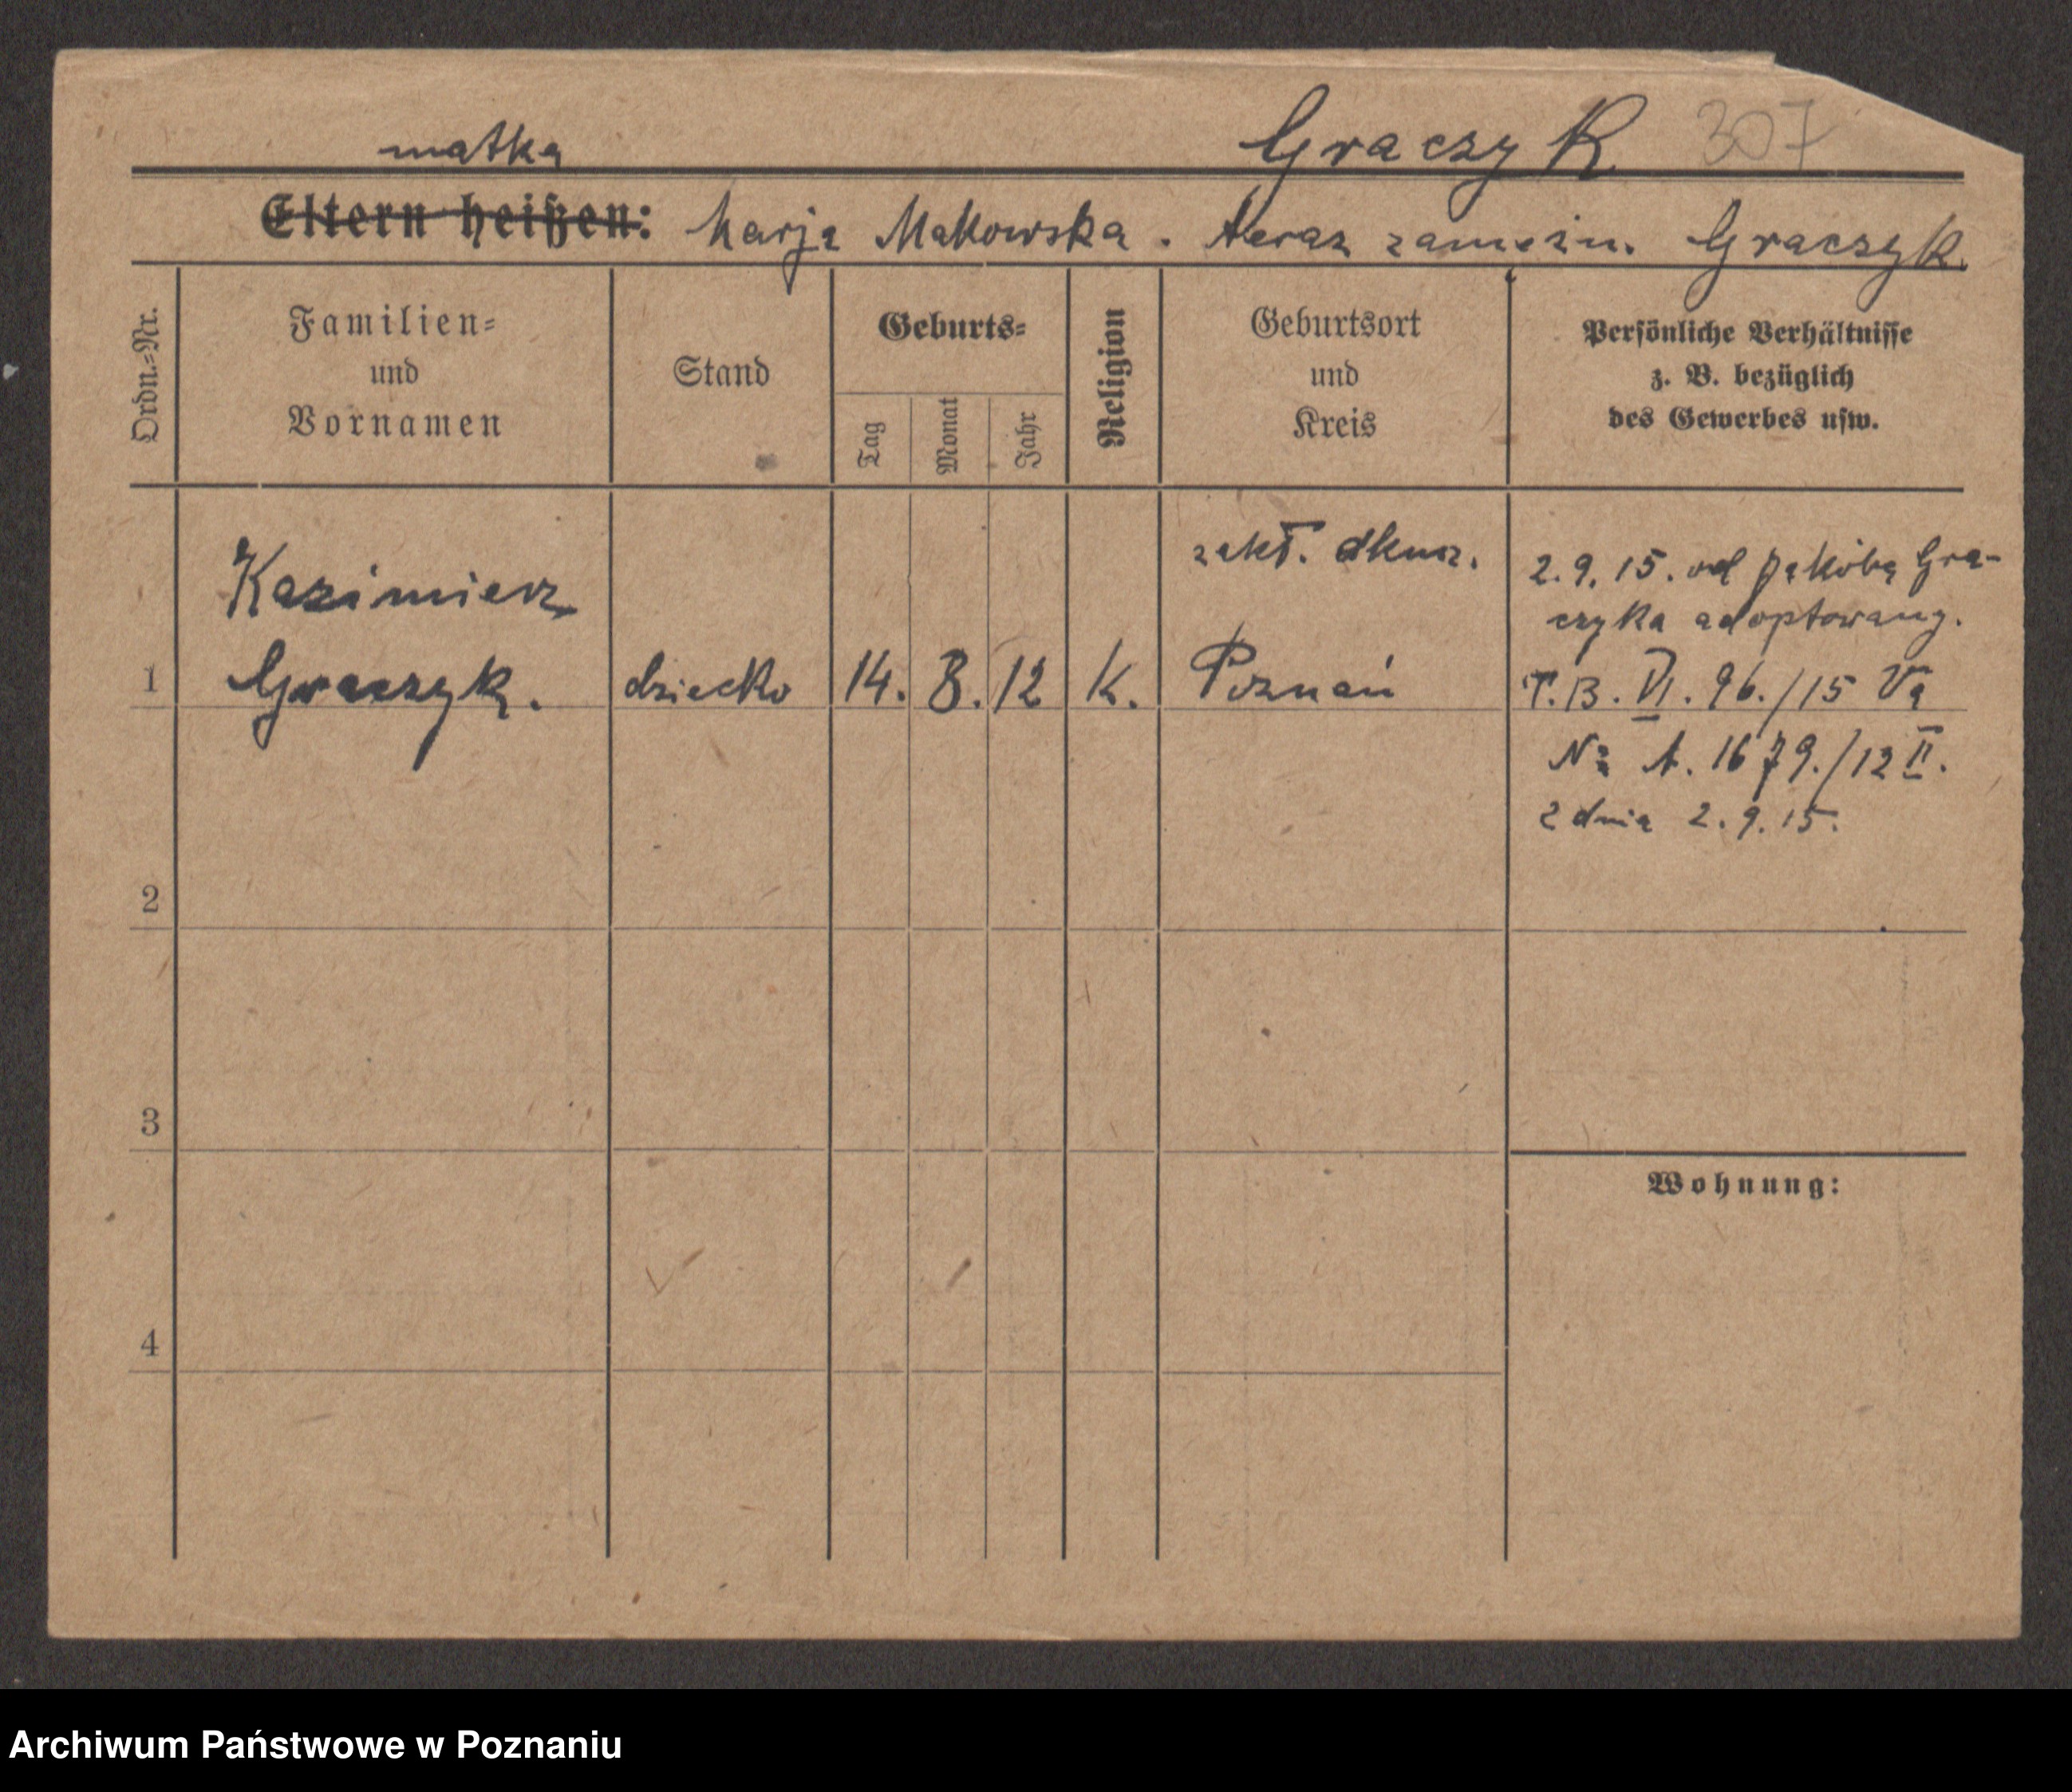 matka Graczyk 307
Eltern heißen: Marja Makowska. teraz zamężn. Graczyk.
Ordn.-Nr.
Familien-
und
Vornamen
Stand
Geburts-
Tag
Monat
Jahr
Religion
Geburtsort
und
Kreis
Persönliche Verhältnisse
z. B. bezüglich
des Gewerbes usw.
1
Kazimierz
Graczyk.
dziecko
14. 8. 12
K.
zakł.
Poznań
2.9.15. od Jakóba Gra-
czyka adoptowany.
T.B. VI. 96./15 Va
№ A. 1679./12 II.
z dnia 2.9.15.
2
3
4
Wohnung:
Archiwum Państwowe w Poznaniu